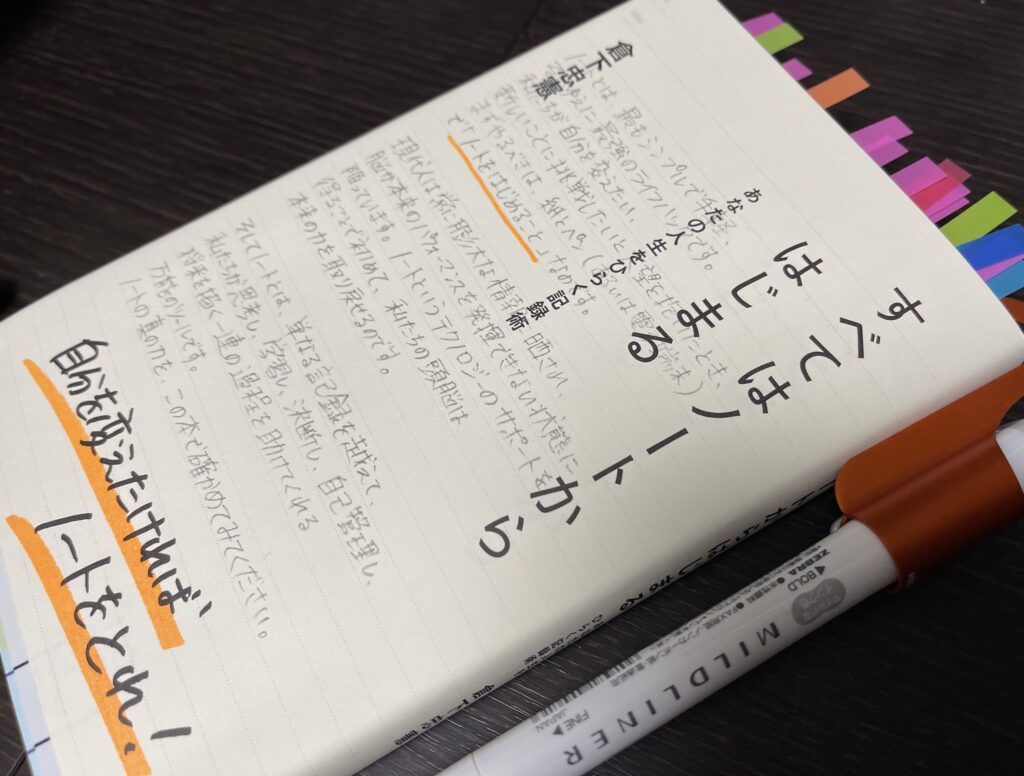 すべてはノートから
はじまる
あなたの人生をひらく記録術
倉下忠憲
ノートとは、最もシンプルで手軽、
最強のライフハックです。
私たちが自分を変えたい、
新しいことに挑戦したいと
まずやるべきは、紙とペン(あるいは 端末)
で「ノートをはじめること」なのです。
現代人は常に膨大な情報に晒され、
脳が本来のパフォーマンスを発揮できない状態に
陥っています。ノートというテクノロジーのサポートを
得ることで初めて、私たちの頭脳は
本来の力を取り戻せるのです。
そしてノートとは、単なる記録を越えて
私たちが思考し、学習し、決断し、自己管理し、
将来を描く一連の過程を助けてくれる
万能のツールです。
ノートの真の力を、この本で確かめてみてください。
自分を変えたければ、
ノートをとれ!
からはじまる
倉下忠憲
◀BOLD
ZEBRA
MILDLINER
FINE▶
JAPAN